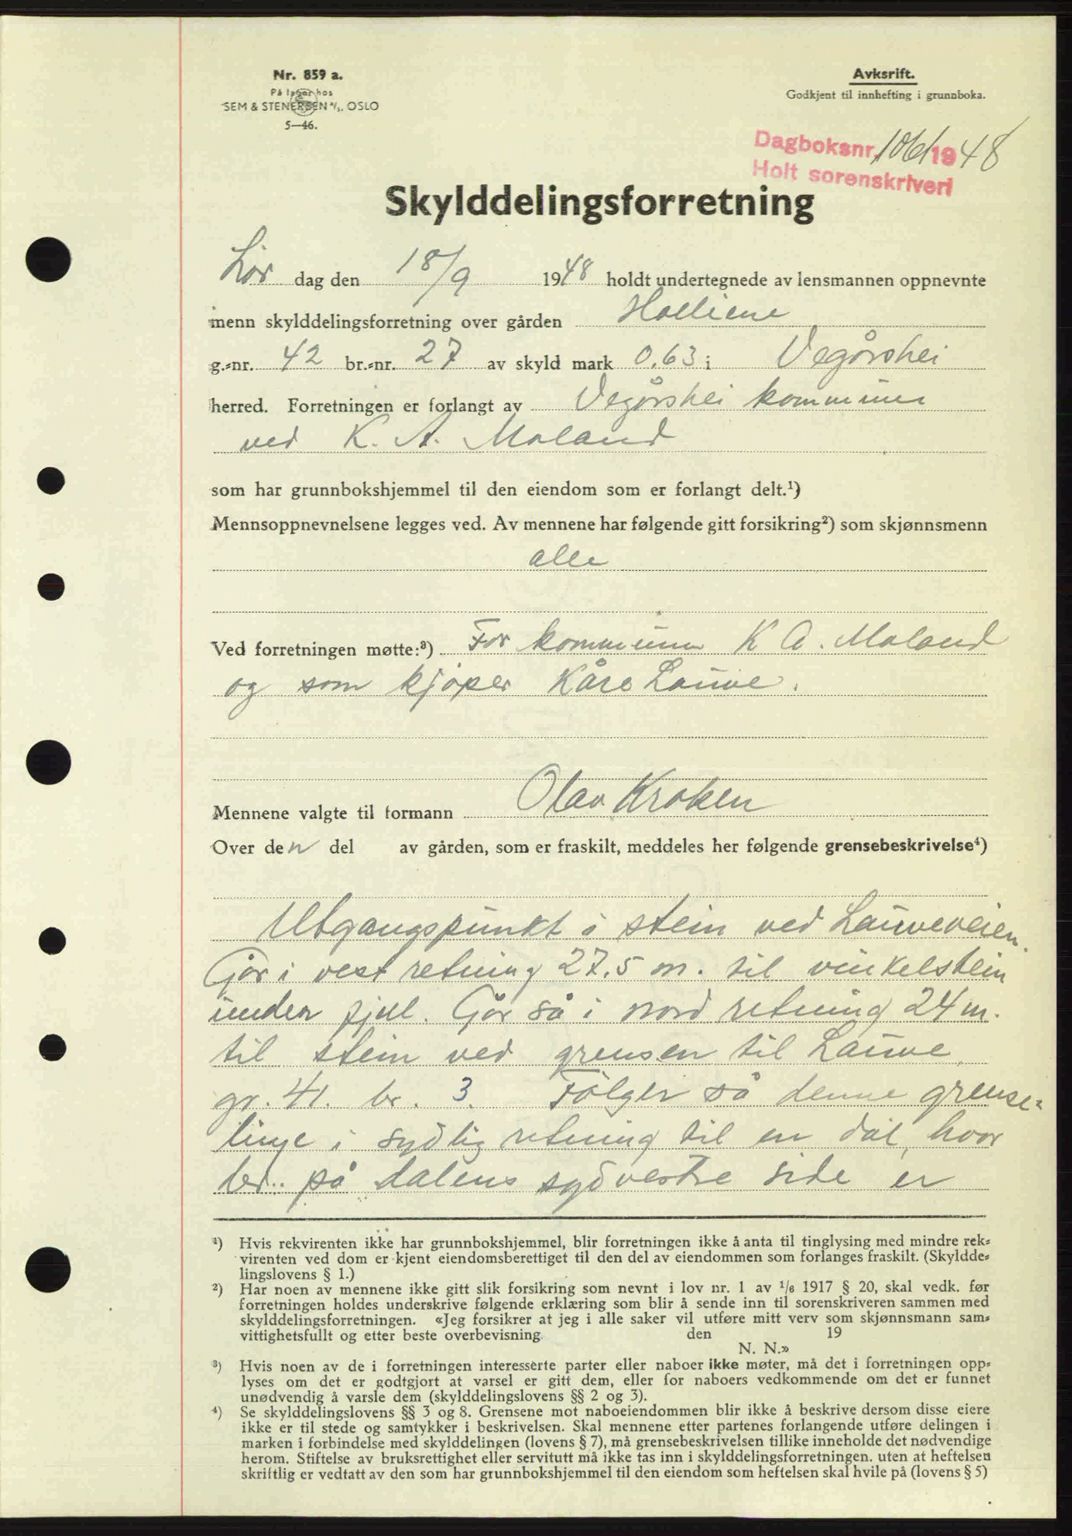 Nr. 859 a.
På lager hos
SEM & STENERSEN A/S. OSLO
5—46.
Avksrift.
Godkjent til innhefting i grunnboka.
Dagboksnr. 1061 1948
Holt sorenskriveri
Skylddelingsforretning
Lør dag den 18/9 1948 holdt undertegnede av lensmannen oppnevnte
menn skylddelingsforretning over gården
g.-nr. 42 br.-nr. 27 av skyld mark 0.63 i Vegårshei
herred. Forretningen er forlangt av Vegårshei kommune
ved K. A. Moland
som har grunnbokshjemmel til den eiendom som er forlangt delt.¹)
Mennsoppnevnelsene legges ved. Av mennene har følgende gitt forsikring²) som skjønnsmenn
alle
Ved forretningen møtte:³) For kommunen K A. Moland
og som kjøper Kåre Lauve.
Mennene valgte til formann Olav Kroken
Over den del av gården, som er fraskilt, meddeles her følgende grensebeskrivelse⁴)
Utgangspunkt i stein ved Lauveveien.
Går i vest retning 27.5 m. til vinkelstein
under fjell. Går så i nord retning 24 m.
til stein ved grensen til Lauve,
gr. 41. br. 3. Følger så denne grense-
linje i sydlig retning til en dal, hvor
der på dalens sydvestre side er
¹) Hvis rekvirenten ikke har grunnbokshjemmel, blir forretningen ikke å anta til tinglysing med mindre rek-
virenten ved dom er kjent eiendomsberettiget til den del av eiendommen som forlanges fraskilt. (Skyldde-
lingslovens § 1.)
²) Har noen av mennene ikke gitt slik forsikring som nevnt i lov nr. 1 av 1/6 1917 § 20, skal vedk. før
forretningen holdes underskrive følgende erklæring som blir å sende inn til sorenskriveren sammen med
skylddelingsforretningen. «Jeg forsikrer at jeg i alle saker vil utføre mitt verv som skjønnsmann sam-
vittighetsfullt og etter beste overbevisning den 19
N. N.»
³) Hvis noen av de i forretningen interesserte parter eller naboer ikke møter, må det i forretningen opp-
lyses om det er godtgjort at varsel er gitt dem, eller for naboers vedkommende om det er funnet
unødvendig å varsle dem (skylddelingslovens §§ 2 og 3).
⁴) Se skylddelingslovens §§ 3 og 8. Grensene mot naboeiendommen blir ikke å beskrive dersom disse eiere
ikke er til stede og samtykker i beskrivelsen. Skal mennene etter partenes forlangende utføre delingen i
marken i forbindelse med skylddelingen (lovens § 7), må grensebeskrivelsen tillike inneholde det nødvendige
herom. Stiftelse av bruksrettighet eller servitutt må ikke tas inn i skylddelingsforretningen. uten at heftelsen
skriftlig er vedtatt av den som har grunnbokshjemmel til den eiendom som heftelsen skal hvile på (lovens § 5)